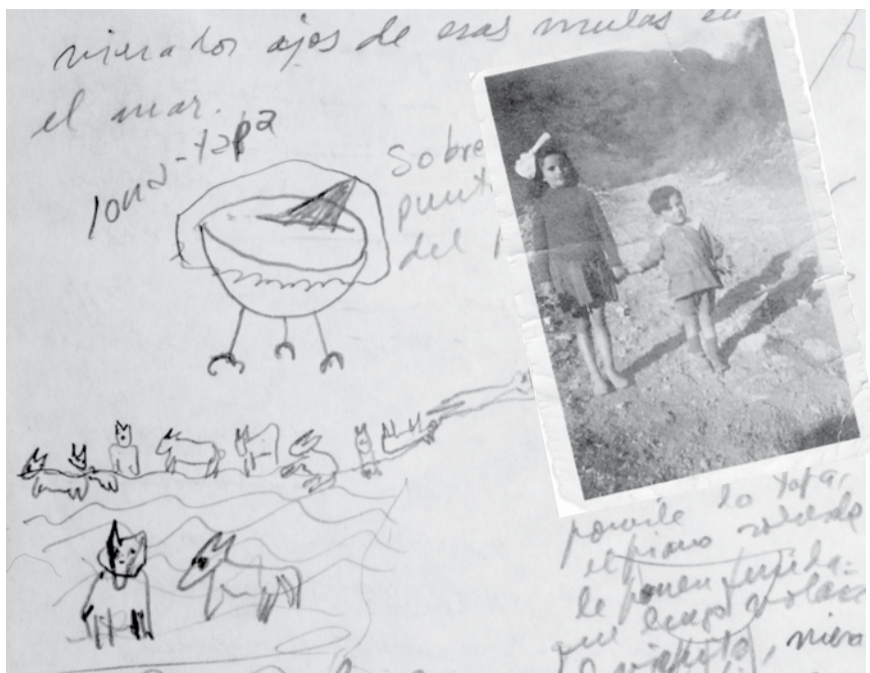 viera los ojos de esas mulas en
el mar.
lona-tapa
Sobre
punt
del
ponile la tapa,
el piano
le ponen
que haga volar
viento, viera